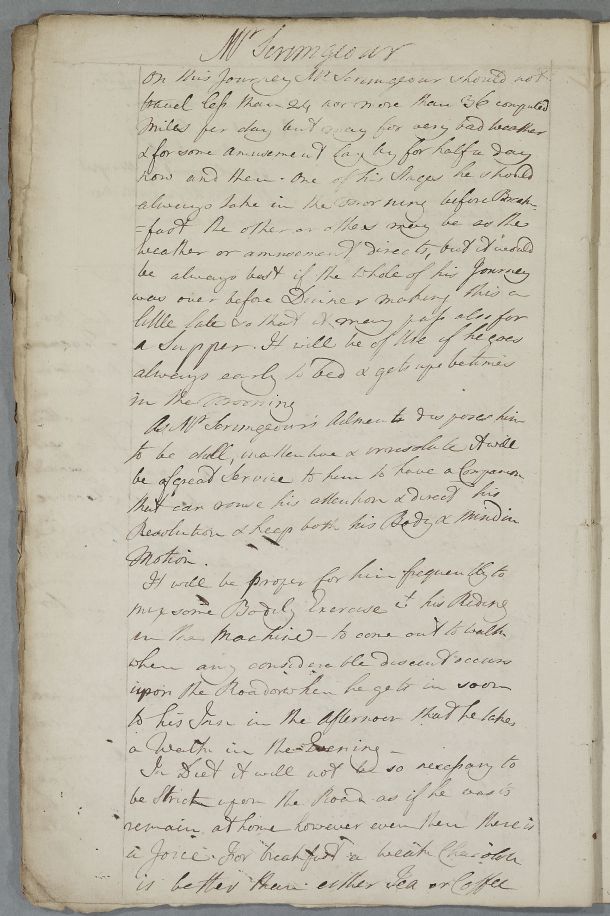 Mr Scrimgeour
On this Journey Mr Scrimgeour should not
travel less than 24 nor more than 36 computed
Miles per day but may for very bad weather
& for some amusement lay by for half a day
now and then. One of his Stages he should
always take in the Morning before Break-
=fast the other or others may be as the
weather or amusement directs, but it would
be always best if the whole of his Journey
was over before Dinner making this a
little late so that it may pass also for
a Supper. It will be of Use if he goes
always early to Bed & gets up betimes
in the Morning
As Mr Scrimgeour's Ailment disposes him
to be dull, inattentive & irresolute it will
be of great Service to him to have a Companion
that can rouse his attention & direct his
Resolution & keep both his Body & Mind in
Motion.
It will be proper for him frequently to
mix some Bodily Exercise wt his Riding
in the Machine - to come out to walk
when any considerable discent occurs
upon the Road or when he gets in soon
to his Inn in the afternoon that he takes
a Walk in the Evening -
In Diet it will not be so necessary to
be Strict upon the Road as if he was to
remain at home however even then there is
a For breakfast a weak Chocolate
is better than either Tea or Coffee